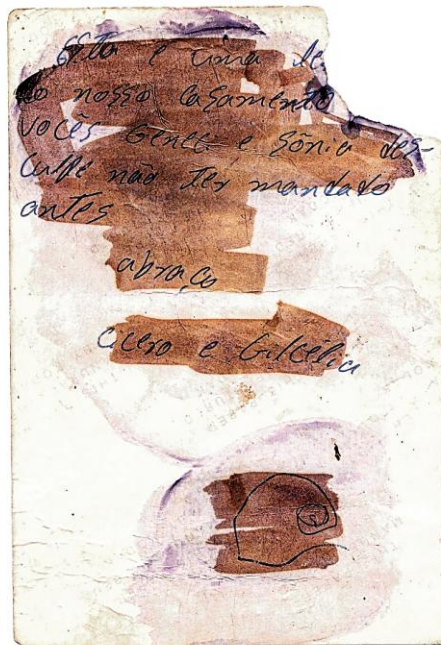 Esta é uma de
do nosso casamento
vocês Geneci e Sônia des-
culpe não ter mandado
antes
abraço
Cicero e Gilcélia